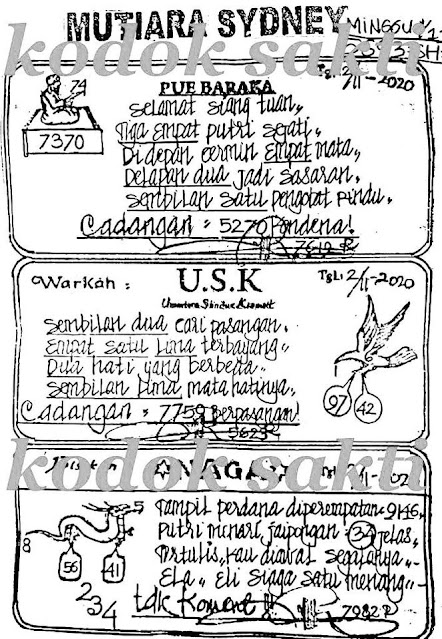 MUTIARA SYDNEY
MINGGU
kodok sakti
PUE BARAKA
TgL: 2/11-2020
74
7370
Selamat siang tuan,,
Tiga Empat putri sejati,,
Di depan cermin Empat mata,,
Delapan dua jadi sasaran.
Sembilan satu pengobat rindu.
Cadangan = 5270 Pondena!
7612 R
Warkah :
U.S.K
TgL: 2/11-2020
Sembilan dua cari pasangan.
Empat satu lima terbayang,,
Dua hati yang berbeda..
Sembilan Lima mata hatinya,,
97 42
Cadangan = 7759 berpasangan!
5623 R
kodok sakti
NAGA
5
8
56 41
234
Tampil perdana diperempatan 9146,,
Putri menari jaipongan 34 jelas,
Ela,, Eli siaga satu menang
tdk Koment !!
7982 R